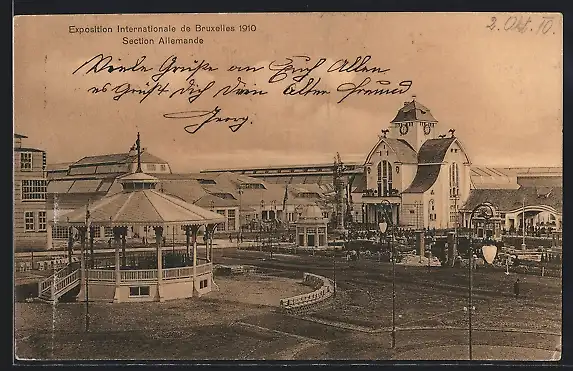 Exposition Internationale de Bruxelles 1910
Section Allemande
2. Okt. 10.
Viele Grüße an Euch Allen
es Grüßt dich Dein Alter Freund
Georg